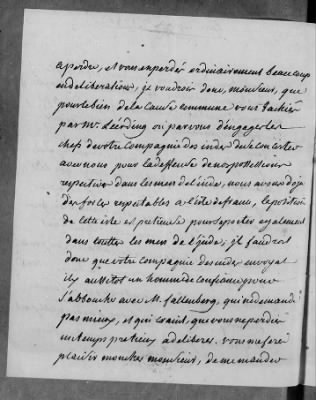 a perdre, et vous en perdés ordinairement beaucoup
en deliberations, je voudrois donc, monsieur, que
pour le bien de la cause commune vous
par Mr. ou par vous d'engager les
chefs de votre Compagnie des indes de se concerter
avec nous pour la deffense de nos possessions
respectives dans les mers de l'inde, nous avons deja
des forces respectables a l'isle de france, la position
de cette isle est pretieuse pour se porter egalement
dans toutes les mers de l'jnde; jl faudroit
donc que votre compagnie des indes envoyat
icy aussitot un homme de confiance pour
s'aboucher avec M. fallenberg, qui ne demande
pas mieux, et qui craint, que vous ne perdiés
un temps pretieux a deliberer. vous me ferés
plaisir mon cher monsieur, de me mander